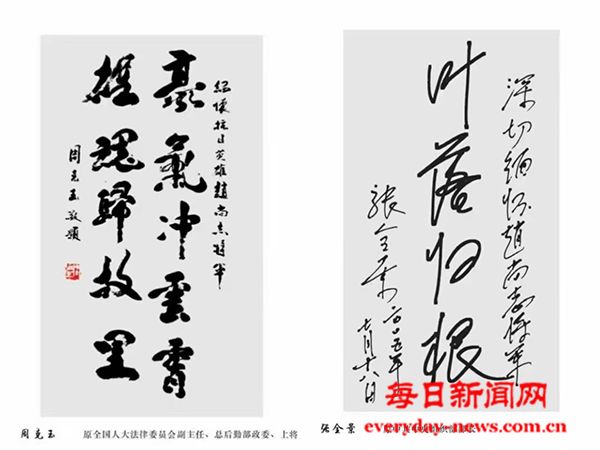 缅懷抗日英雄趙尚志将军
豪氣冲雲霄
雄魂歸故里
周克玉敬題
深切缅怀趙尚志将军
叶落归根
張全景 二〇〇五年
七月十八日
周克玉 原全国人大法律委员会副主任、总后勤部政委、上将
张全景
每日新闻网
everyday-news.com